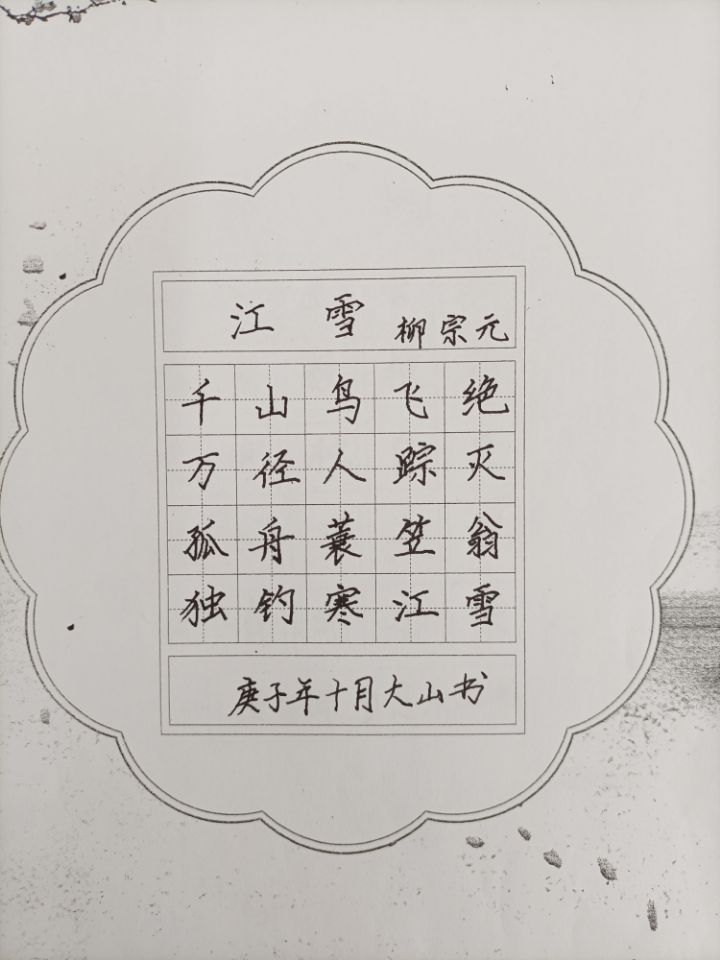 江雪 柳宗元
千山鸟飞绝
万径人踪灭
孤舟蓑笠翁
独钓寒江雪
庚子年十月大山书